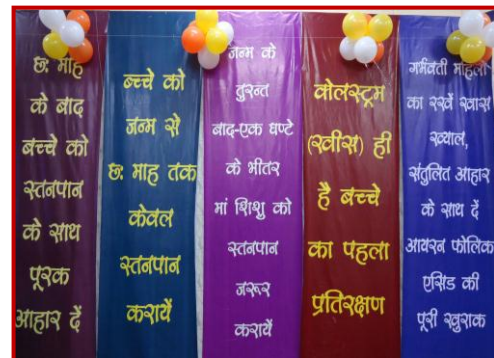 छः माह
के बाद
बच्चे को
स्तनपान
के साथ
पूरक
आहार दें
बच्चे को
जन्म से
छः माह तक
केवल
स्तनपान
करायें
जन्म के
तुरन्त
बाद-एक घण्टे
के भीतर
मां शिशु को
स्तनपान
जरूर
करायें
कोलस्ट्रम
(खीस) ही
है बच्चे
का पहला
प्रतिरक्षण
गर्भवती महिला
का रखें खास
ख्याल,
संतुलित आहार
के साथ दें
आयरन फोलिक
एसिड की
पूरी खुराक